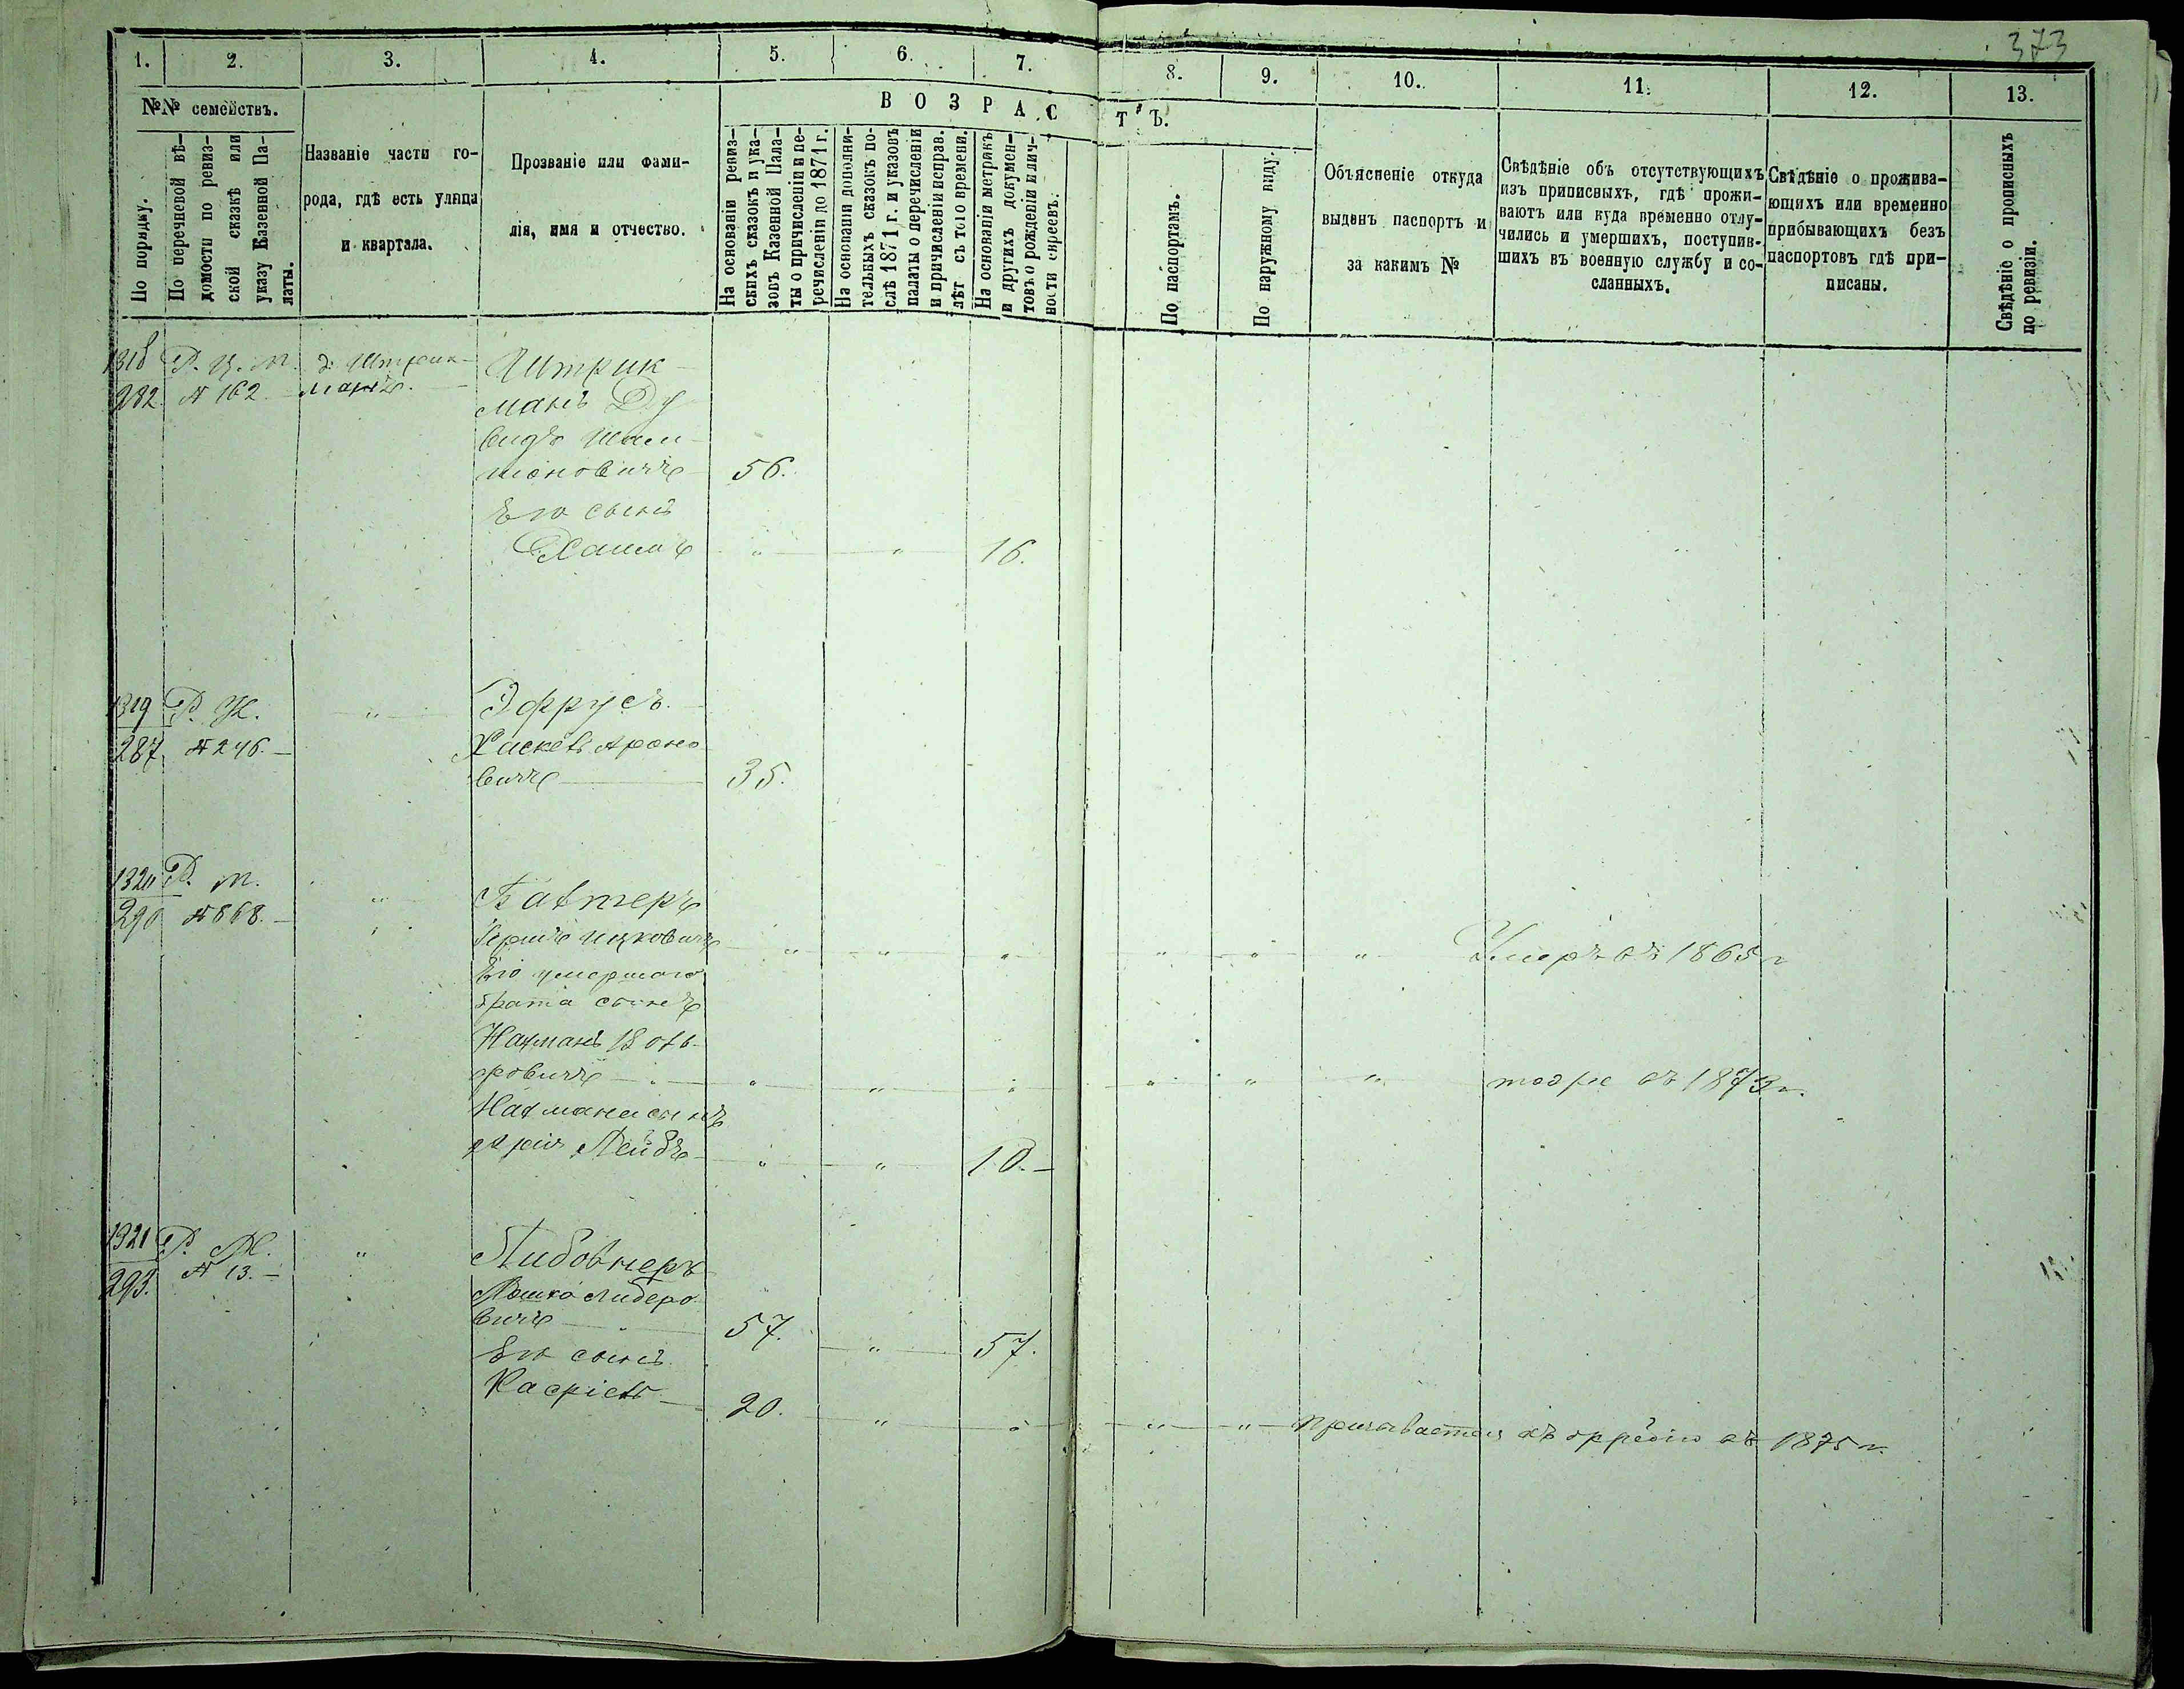 373
1. 2. 3. 4. 5. 6. 7. 8. 9. 10. 11. 12. 13.
№№ семействъ.
По порядку.
По перечневой вѣ-
домости по ревиз-
ской сказкѣ или
указу Казенной Па-
латы.
Названіе части го-
рода, гдѣ есть улица
и квартала.
Прозваніе или фами-
лія, имя и отчество.
ВОЗРАСТЪ.
На основаніи ревиз-
скихъ сказокъ и ука-
зовъ Казенной Пала-
ты о причисленіи и пе-
речисленіи до 1871 г.
На основаніи дополни-
тельныхъ сказокъ по-
слѣ 1871 г. и указовъ
палаты о перечисленіи
и причисленіи исправ.
лѣт съ того времени.
На основаніи метрикъ
и другихъ докумен-
товъ о рожденіи и лич-
ности евреевъ.
По паспортамъ.
По наружному виду.
Объясненіе откуда
выданъ паспортъ и
за какимъ №
Свѣдѣніе объ отсутствующихъ
изъ приписныхъ, гдѣ прожи-
ваютъ или куда временно отлу-
чились и умершихъ, поступив-
шихъ въ военную службу и со-
сланныхъ.
Свѣдѣніе о прожива-
ющихъ или временно
прибывающихъ безъ
паспортовъ гдѣ при-
писаны.
Свѣдѣніе о прописныхъ
по ревизіи.
1318 Р. Ц. М. д. Штрик- Штрик
282 № 162 манъ. манъ Ду
видъ
шоновичъ 56.
Его сынъ
Хаимъ " " 16.
1319 Р. Н. " Эфрусъ.
287 № 246. Хаскель Ароно
вичъ 35.
1320 Р. М. " Балтеръ
290 № 868. Гершъ Ицковичъ " " " " " " Умеръ въ 1865 г
Его умершаго
брата сынъ
Нахманъ Воль-
фовичъ " " " " " " тоже въ 1873 г.
Нахмана сынъ
Лейбъ " " 10.
1321 Р. М. " Либовнеръ
293. № 13. Мошко Либеро
вичъ 57. " 57.
Его сынъ
20. " " " " призывается въ 1875 г.